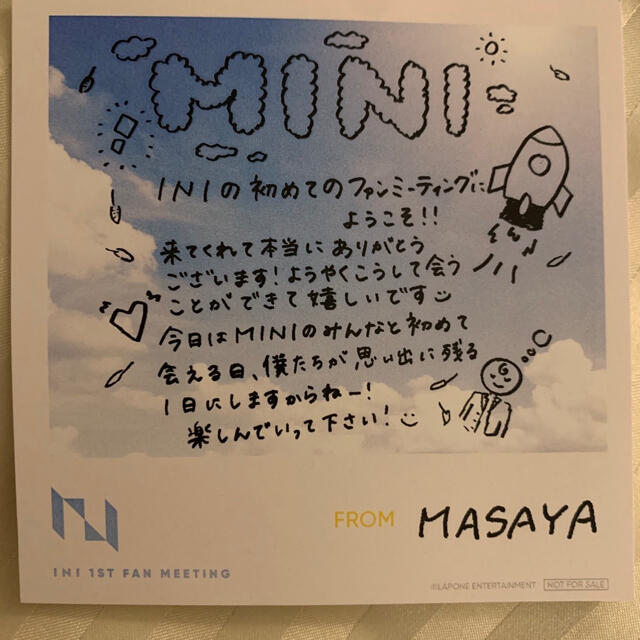 MINI
INIの初めてのファンミーティングに
ようこそ!!
来てくれて本当にありがとう
ございます!ようやくこうして会う
ことができて嬉しいです
今日はMINIのみんなと初めて
会える日、僕たちが思い出に残る
1日にしますからねー!
楽しんでいって下さい!
FROM MASAYA
INI 1ST FAN MEETING
©LAPONE ENTERTAINMENT NOT FOR SALE